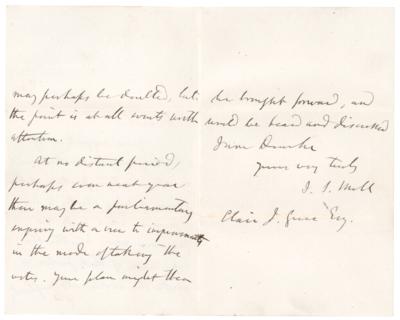 may perhaps be doubted, but
the point is at all events worth
attention.
At no distant period,
perhaps even next year
there may be a parliamentary
inquiry with a view to improvements
in the mode of taking the
votes. Your plan might then
be brought forward, and
would be heard and discussed
I am Dear Sir
yours very truly
J. S. Mill
Clair J. Grece Esq.